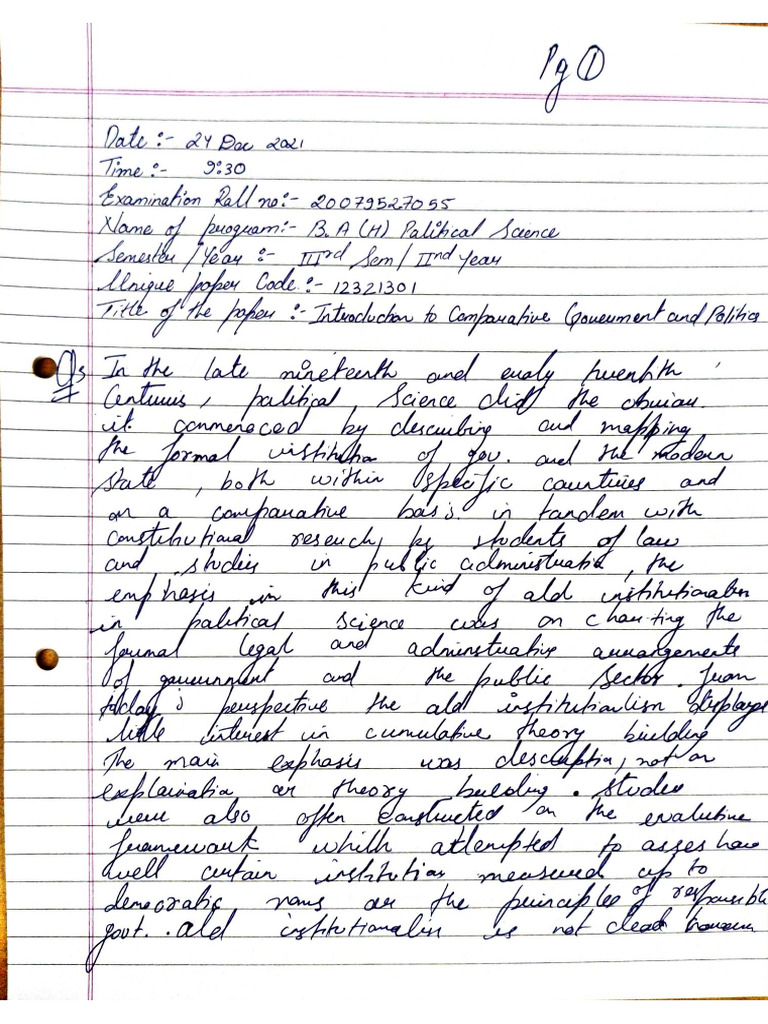 Pg ①
Date :- 24 Dec 2021
Time :- 9:30
Examination Roll no :- 20079527055
Name of program :- B.A (H) Political Science
Semester / Year :- IIIrd Sem / IInd Year
Unique paper Code :- 12321301
Title of the paper :- Introduction to Comparative Government and Politics
Q5 In the late nineteenth and early twenthth
Centuries, political, Science did the obvious.
it commenced by describing and mapping
the formal institution of gov. and the modern
State, both within specific countries and
on a comparative basis. in tandem with
constitutional research, by students of law
and studies in public administratio, the
emphasis in this kind of old institutionalism
in political science was on charting the
formal legal and adminstrative arrangements
of government and the public Sector. from
today's perspective the old institutionlism displayed
little interest in cumulative theory building
The main exphasis was description, not on
explaination or theory building. studies
were also often constructed on the evaluative
framework which attempted to asses how
well certain institution measured up to
democratic norms or the principles of responsible
govt. . old institutionalism is not dead however